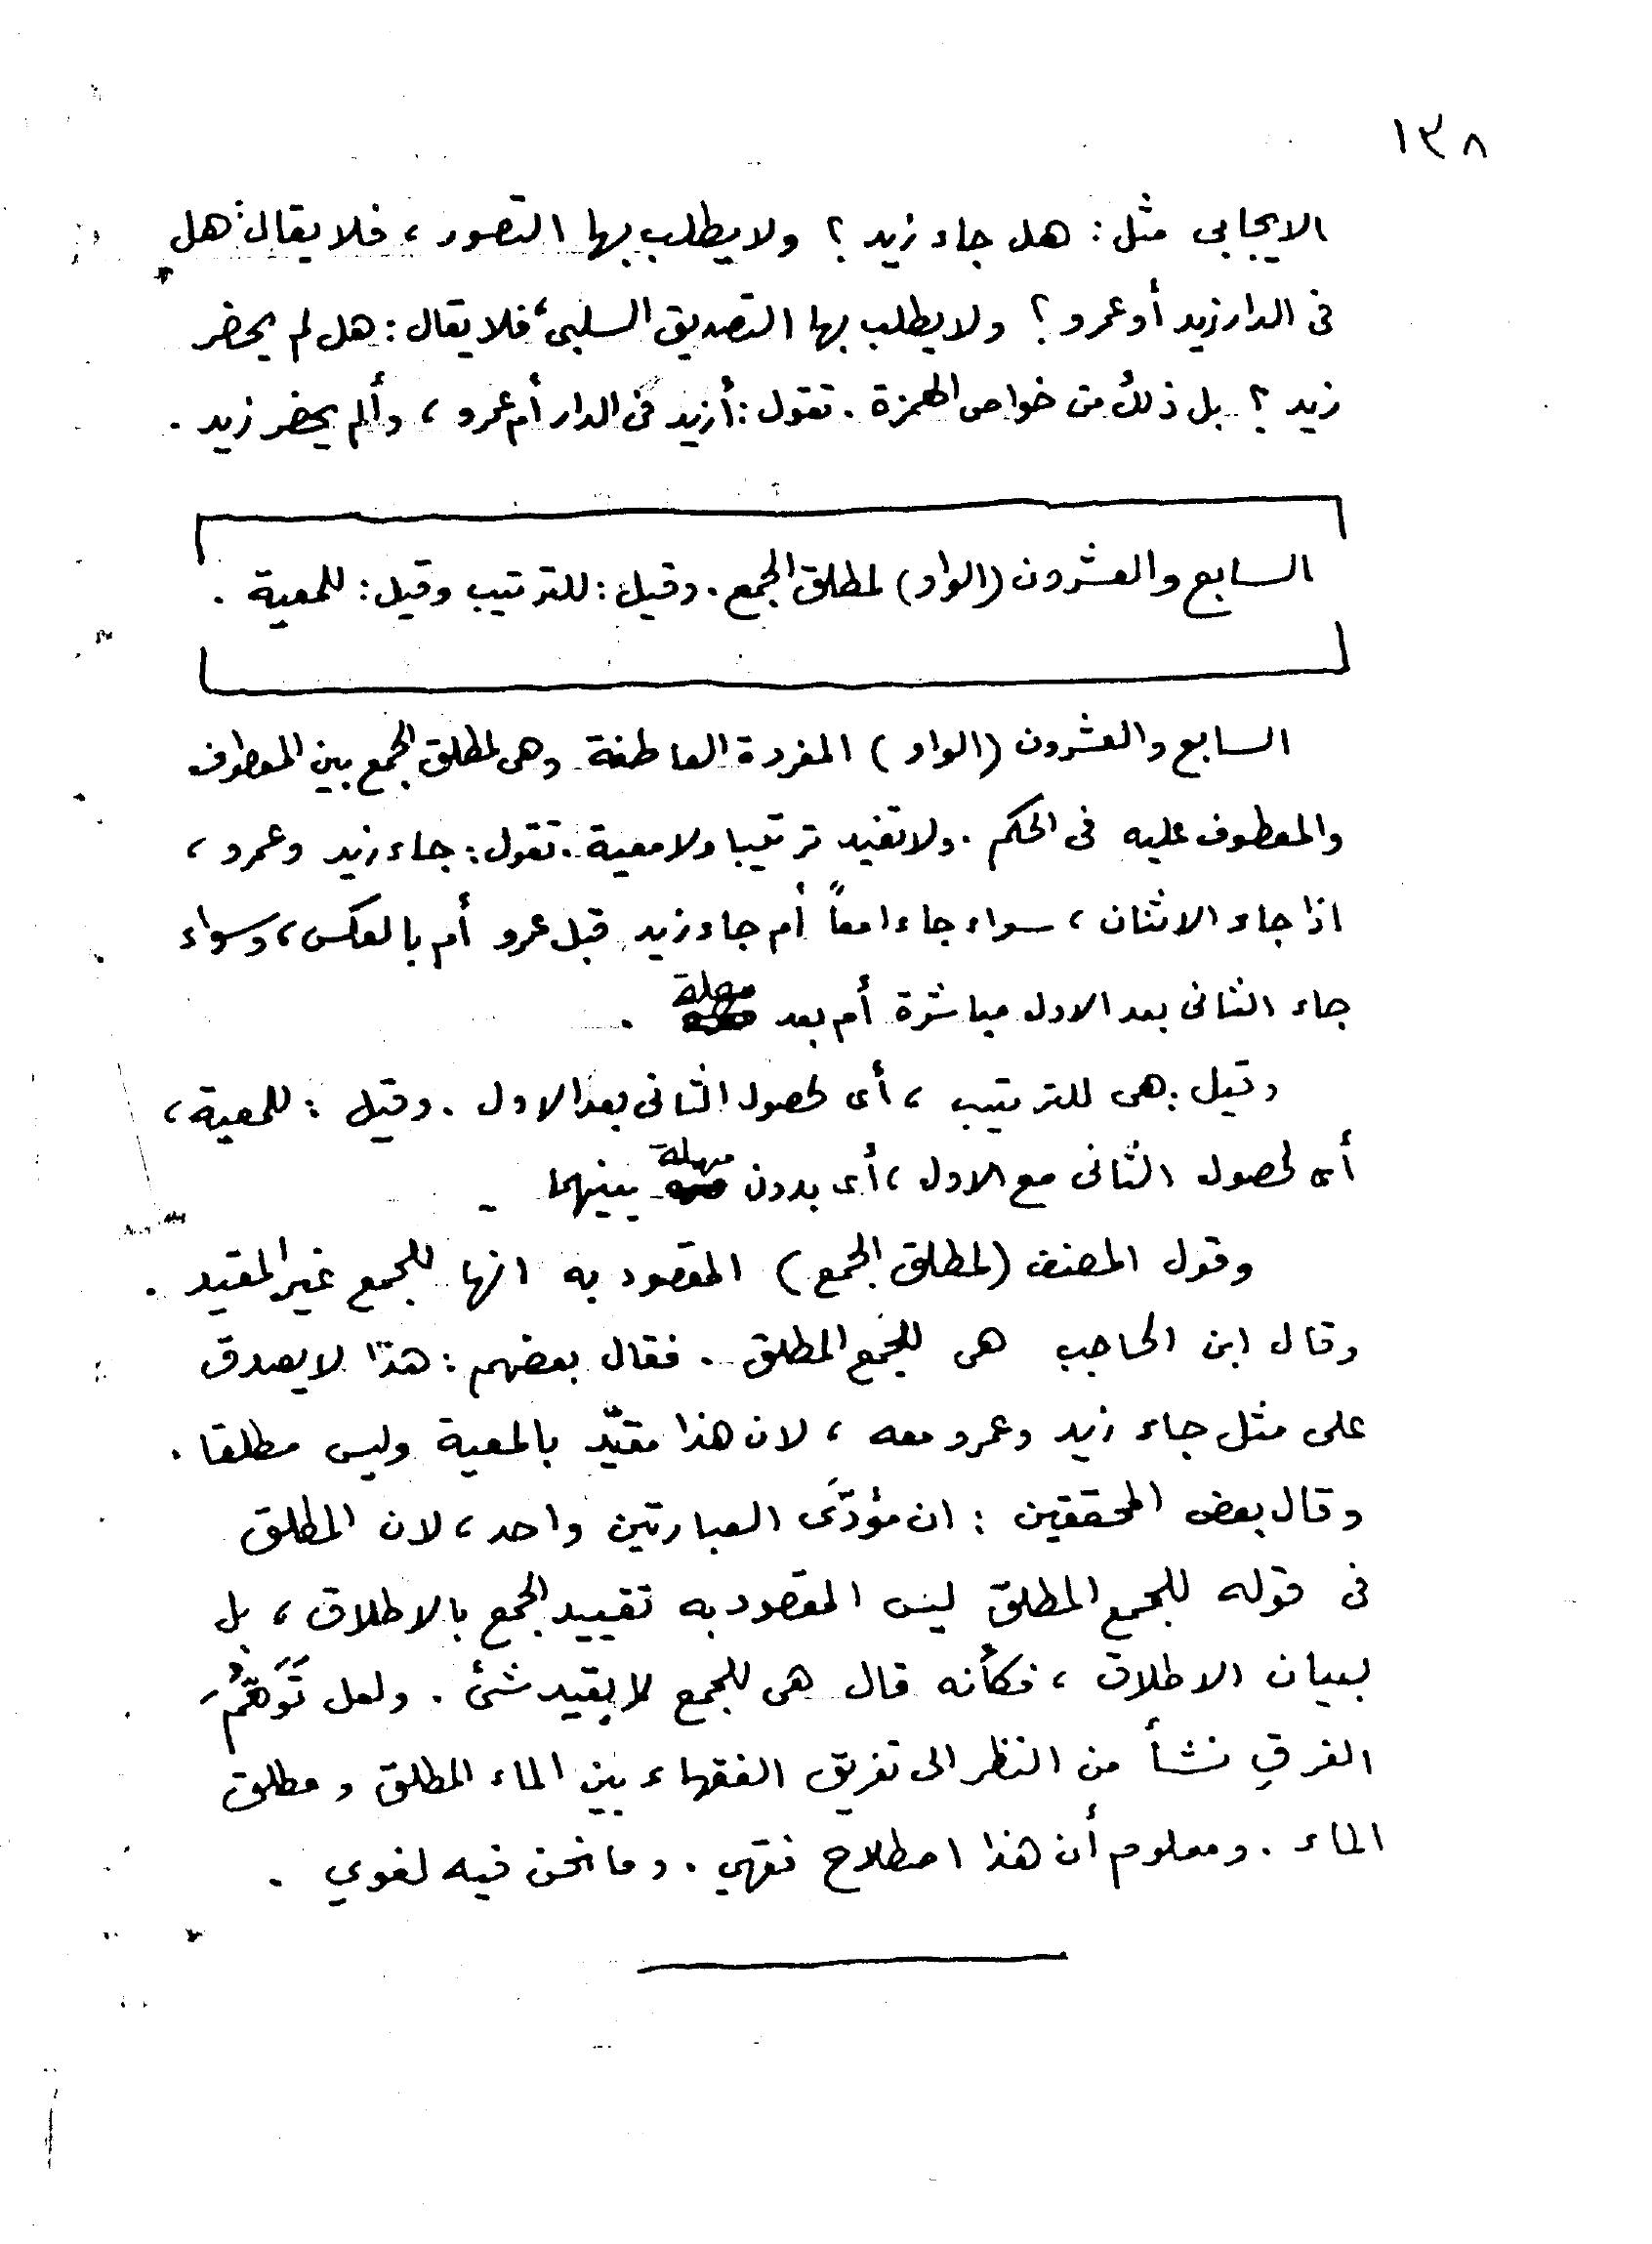 ١٣٨
الايجابى مثل : هل جاء زيد ؟ ولا يطلب بها التصور ، فلا يقال : هل
فى الدار زيد أو عمرو ؟ ولا يطلب بها التصديق السلبى ، فلا يقال : هل لم يحضر
زيد ؟ بل ذلك من خواص الهمزة . تقول : أزيد فى الدار أم عمرو ، وألم يحضر زيد .
السابع والعشرون (الواو) لمطلق الجمع . وقيل : للترتيب وقيل : للمعية .
السابع والعشرون (الواو) المفردة العاطفة وهى لمطلق الجمع بين المعطوف
والمعطوف عليه فى الحكم . ولا تفيد ترتيبا ولا معية . تقول : جاء زيد وعمرو ،
اذا جاء الاثنان ، سواء جاءا معاً أم جاء زيد قبل عمرو أم بالعكس ، وسواء
جاء الثانى بعد الاول مباشرة أم بعد مهلة .
وقيل : هى للترتيب ، أى لحصول الثانى بعد الاول . وقيل : للمعية ،
أى لحصول الثانى مع الاول ، أى بدون مهلة بينهما .
وقول المصنف (لمطلق الجمع) المقصود به انها للجمع غير المقيد .
وقال ابن الحاجب هى للجمع المطلق . فقال بعضهم : هذا لا يصدق
على مثل جاء زيد وعمرو معه ، لان هذا مقيّد بالمعية وليس مطلقا .
وقال بعض المحققين : ان مؤدَّى العبارتين واحد ، لان المطلق
فى قوله للجمع المطلق ليس المقصود به تقييد الجمع بالاطلاق ، بل
لبيان الاطلاق ، فكأنه قال هى للجمع لا بقيد شئ . ولعل تَوَهُّمَ
الفرقِ نشأ من النظر الى تفريق الفقهاء بين الماء المطلق ومطلق
الماء . ومعلوم أن هذا اصطلاح فقهي . وما نحن فيه لغوي .